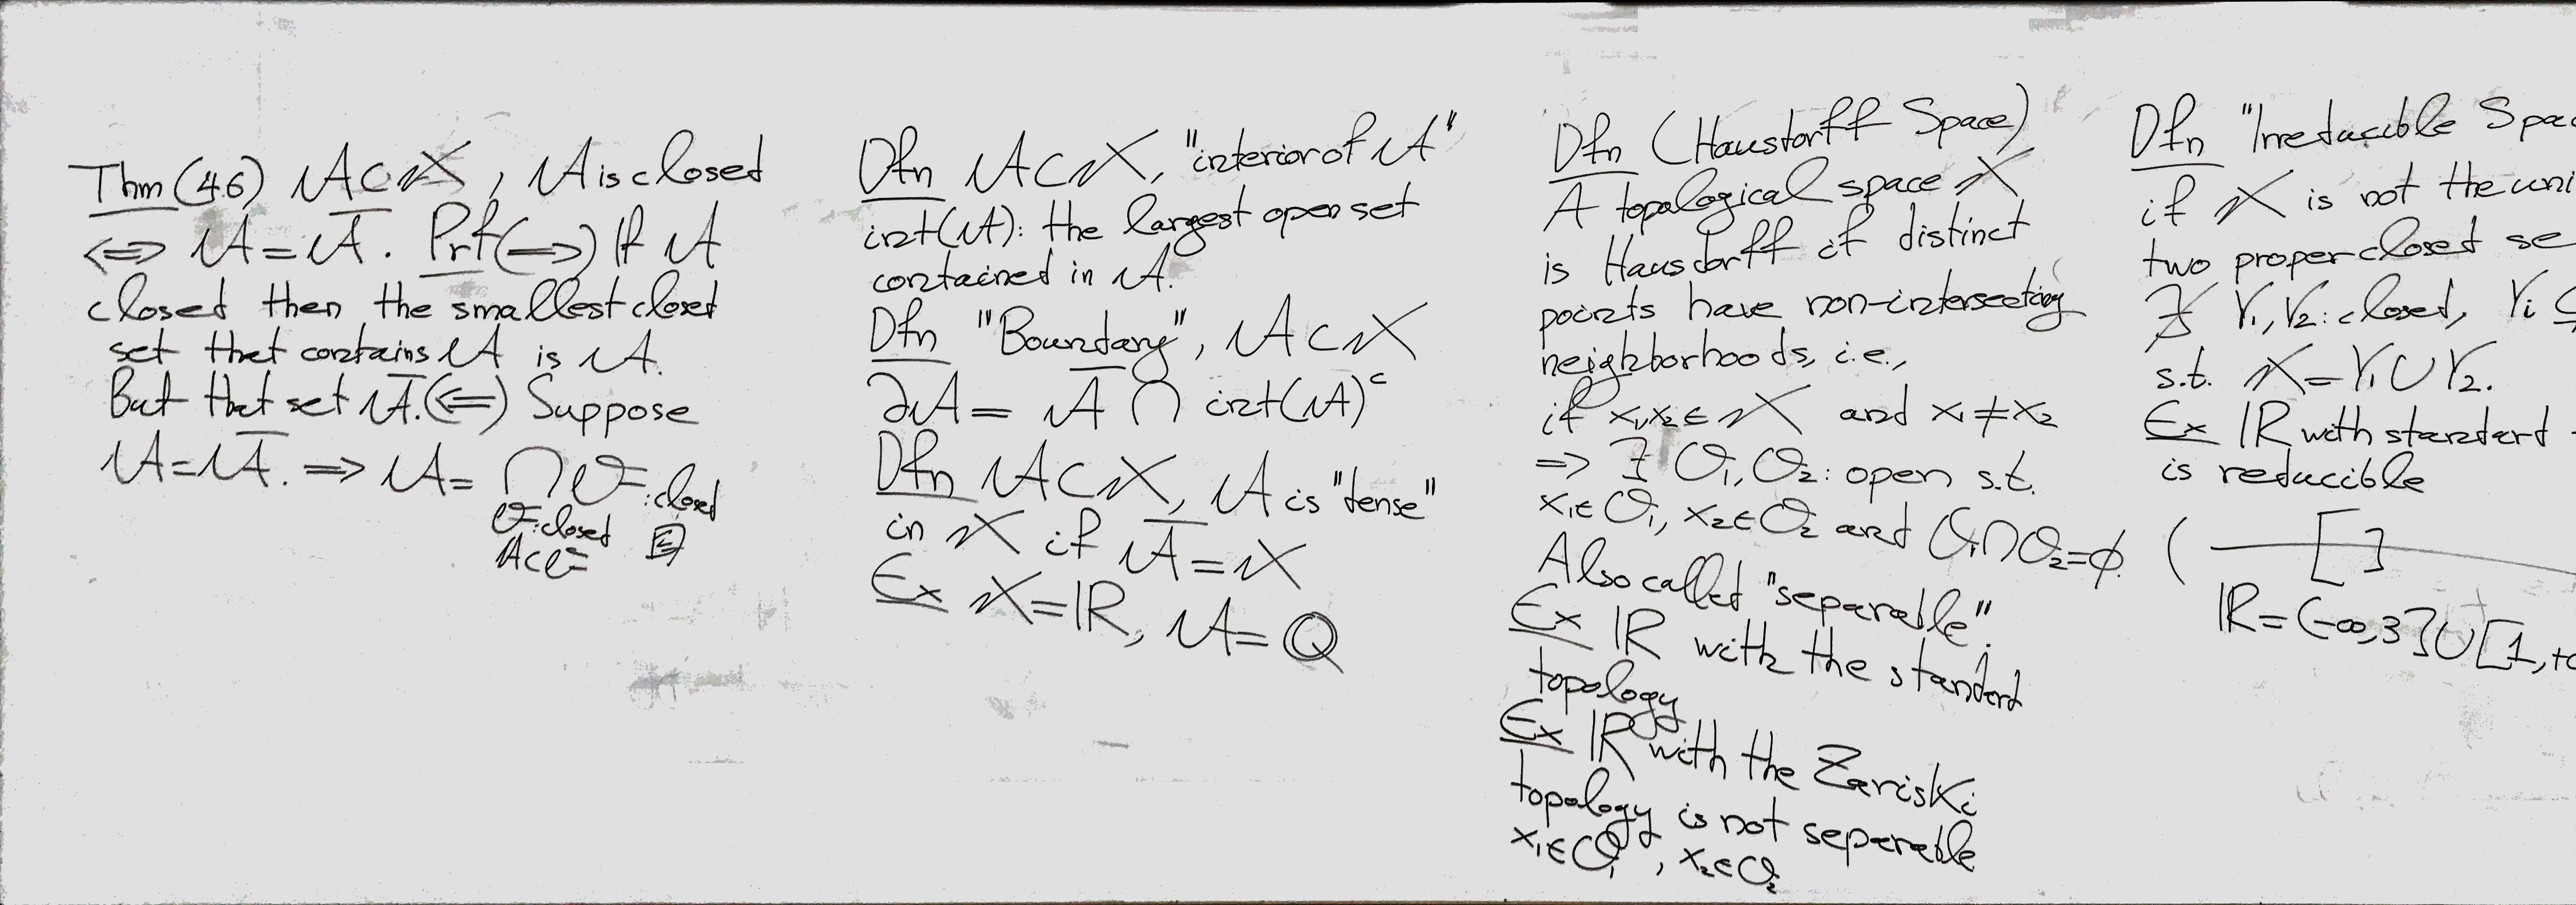 Thm (4.6) A ⊂ X, A is closed
⟺ A = A̅. Prf (⟹) If A
closed then the smallest closed
set that contains A is A.
But that set A̅. (⟸) Suppose
A = A̅. ⟹ A = ⋂ F :closed
F:closed
A⊂F
Dfn A ⊂ X, "interior of A"
int(A): the largest open set
contained in A.
Dfn "Boundary", A ⊂ X
∂A = A̅ ∩ int(A)ᶜ
Dfn A ⊂ X, A is "dense"
in X if A̅ = X
Ex X = ℝ, A = ℚ
Dfn (Haustorff Space)
A topological space X
is Hausdorff if distinct
points have non-intersecting
neighborhoods, i.e.,
if x₁,x₂ ∈ X and x₁ ≠ x₂
⟹ ∃ O₁, O₂: open s.t.
x₁∈O₁, x₂∈O₂ and O₁∩O₂=∅.
Also called "separable".
Ex ℝ with the standard
topology
Ex ℝ with the Zariski
topology is not separable
x₁∈O₁, x₂∈O₂
Dfn "Irreducible Spac
if X is not the uni
two proper closed se
∄ Y₁, Y₂: closed, Yᵢ ⊊
s.t. X = Y₁ ∪ Y₂.
Ex ℝ with standard
is reducible
( [ ]
ℝ = (-∞,3] ∪ [1,+